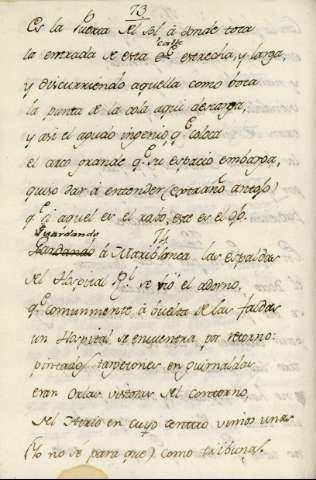 73
Es la Puerta del Sol, á donde toca
calle
la entrada de esta estrecha, y larga,
y discurriendo aquella como boca
la punta de la cola aqui descarga,
y asi el agudo ingenio, qe. coloca
el arco grande qe. su espacio embarga,
quiso dar á entender (extraño antojo)
qe. si aquel es el rabo, este es el
74
Guardando
á Mariblanca las espaldas
del Hospital Rl. se vió el adorno,
qe. comunmente á buelta de las faldas
un Hospital se encuentra por retorno:
pintados tarjetones en guirnaldas
eran Orlas vistosas del contorno,
del Atrio en cuyo centro vimos unas
(Yo no sé para que) como tribunas.